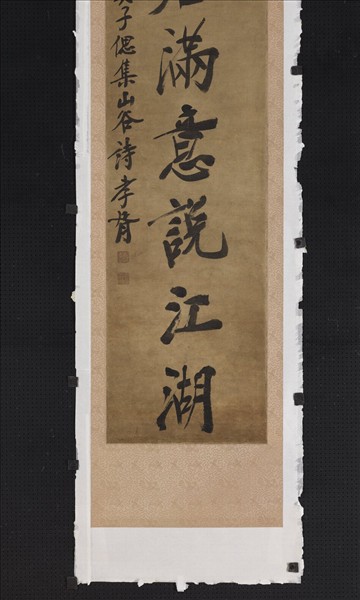 滿意說江湖
子偲集山谷詩孝胥